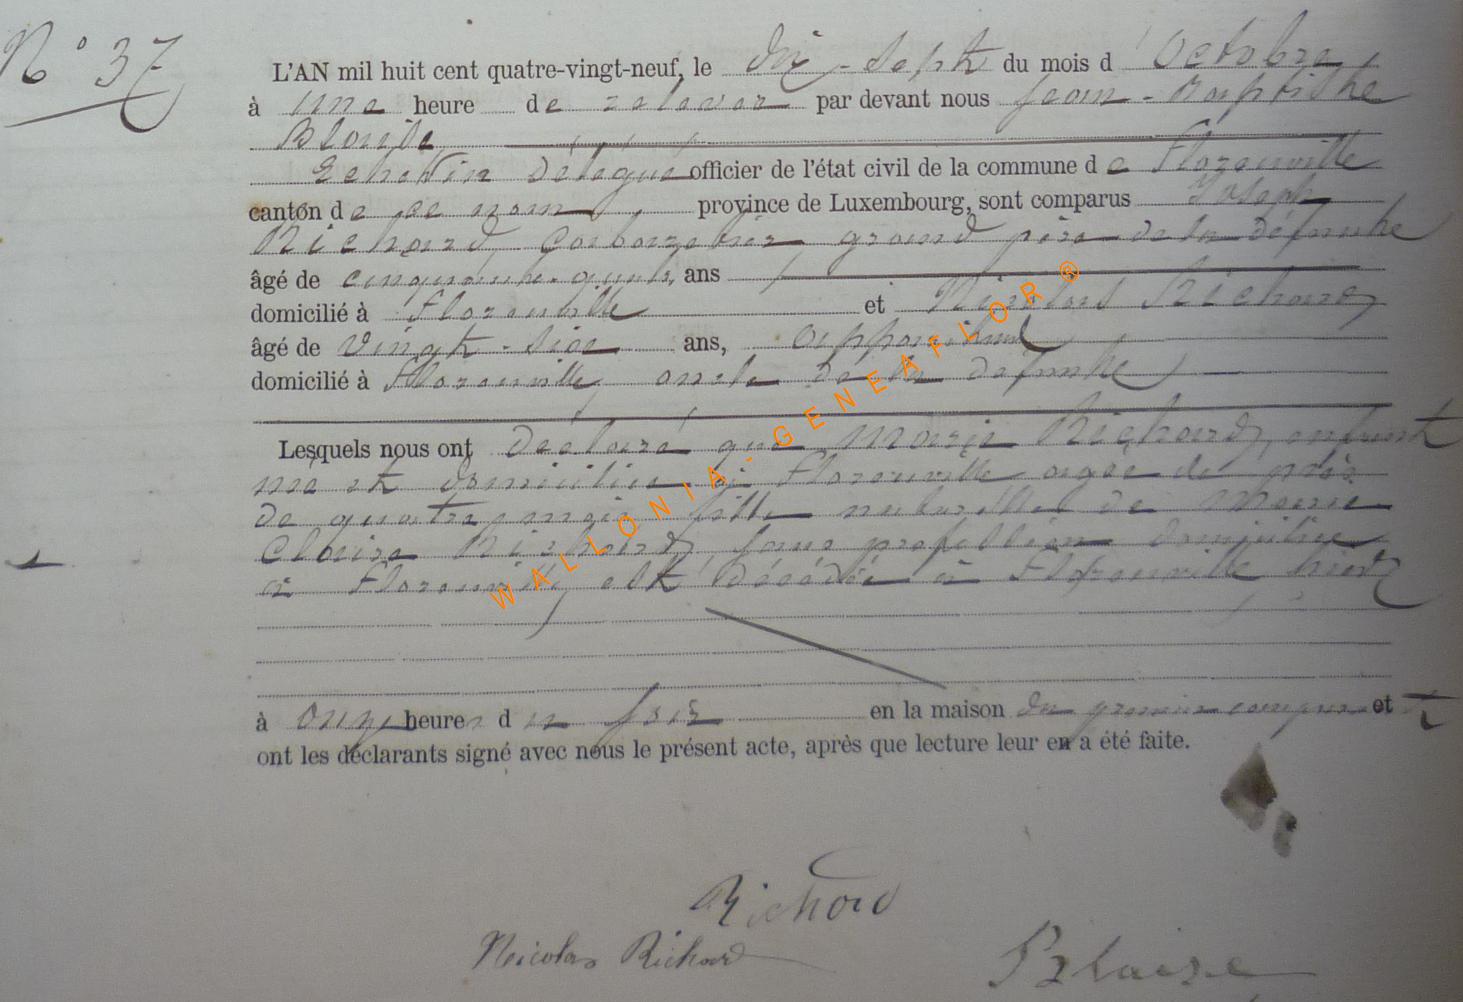 N° 37
L'AN mil huit cent quatre-vingt-neuf, le dix-sept du mois d'Octobre
à une heure de relevée par devant nous Jean-Baptiste
Blaise
Echevin délégué officier de l'état civil de la commune de Florenville
canton de ce nom province de Luxembourg, sont comparus Joseph
Richard, grand père de la défunte
âgé de cinquante- ans
domicilié à Florenville et Nicolas Richard
âgé de vingt-six ans,
domicilié à Florenville, oncle de la défunte
Lesquels nous ont déclaré que Marie Richard, enfant
née et domiciliée à Florenville agée de près
de quatre mois fille naturelle de Marie
Claire Richard, sans profession domiciliée
à Florenville, est décédée à Florenville hier
à onze heures du soir en la maison du premier comparant et
ont les déclarants signé avec nous le présent acte, après que lecture leur en a été faite.
Richard
Nicolas Richard
Blaise
WALLONIA-GENEAFLOR®